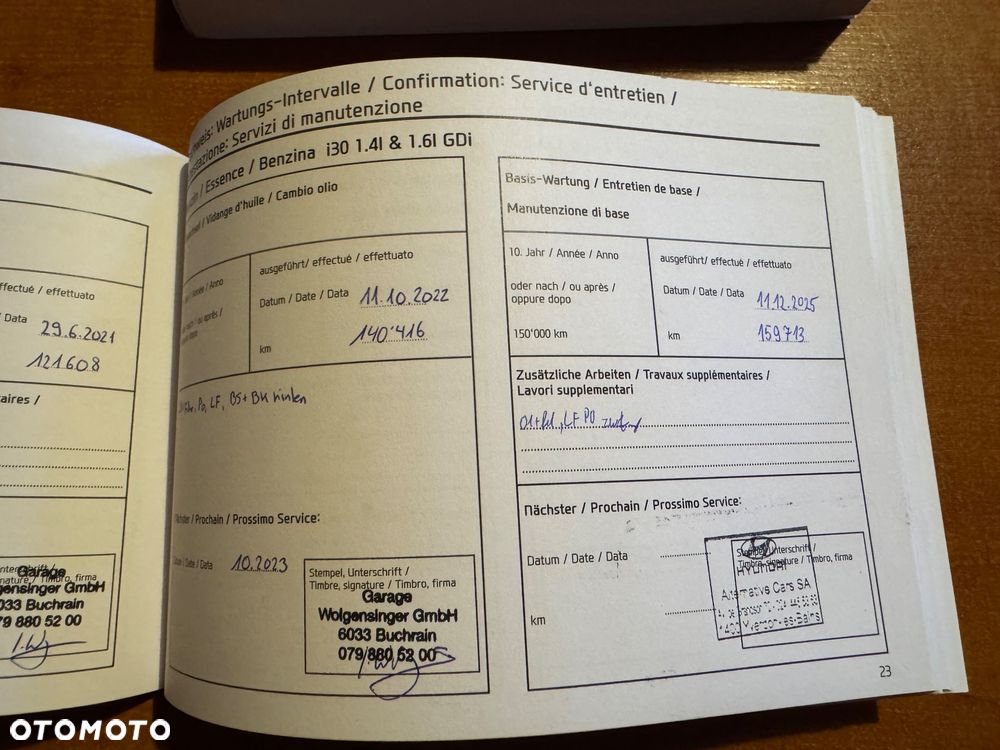 weis: Wartungs-Intervalle / Confirmation: Service d'entretien /
Servizi di manutenzione
/ Essence / Benzina i30 1.4l & 1.6l GDi
/ Vidange d'huile / Cambio olio
/ Année / Anno
nach / ou après /
ausgeführt/ effectué / effettuato
Datum / Date / Data 11.10.2022
km 140'416
PO, LF, BS + BK hinten
/ Prochain / Prossimo Service:
/ Date / Data 10.2023
Stempel, Unterschrift /
Timbre, signature / Timbro, firma
Garage
Wolgensinger GmbH
6033 Buchrain
079/880 52 00
ffectué / effettuato
/ Data 29.6.2021
121608
taires /
Garage
gensinger GmbH
033 Buchrain
79 880 52 00
Basis-Wartung / Entretien de base /
Manutenzione di base
10. Jahr / Année / Anno
oder nach / ou après /
oppure dopo
150'000 km
ausgeführt/ effectué / effettuato
Datum / Date / Data 11.12.2025
km 159713
Zusätzliche Arbeiten / Travaux supplémentaires /
Lavori supplementari
LF PO
Nächster / Prochain / Prossimo Service:
Datum / Date / Data
km
Stempel, Unterschrift /
Timbre, signature / Timbro, firma
HYUNDAI
Alternative Cars SA
1400 Yverdon-les-Bains
23
OTOMOTO